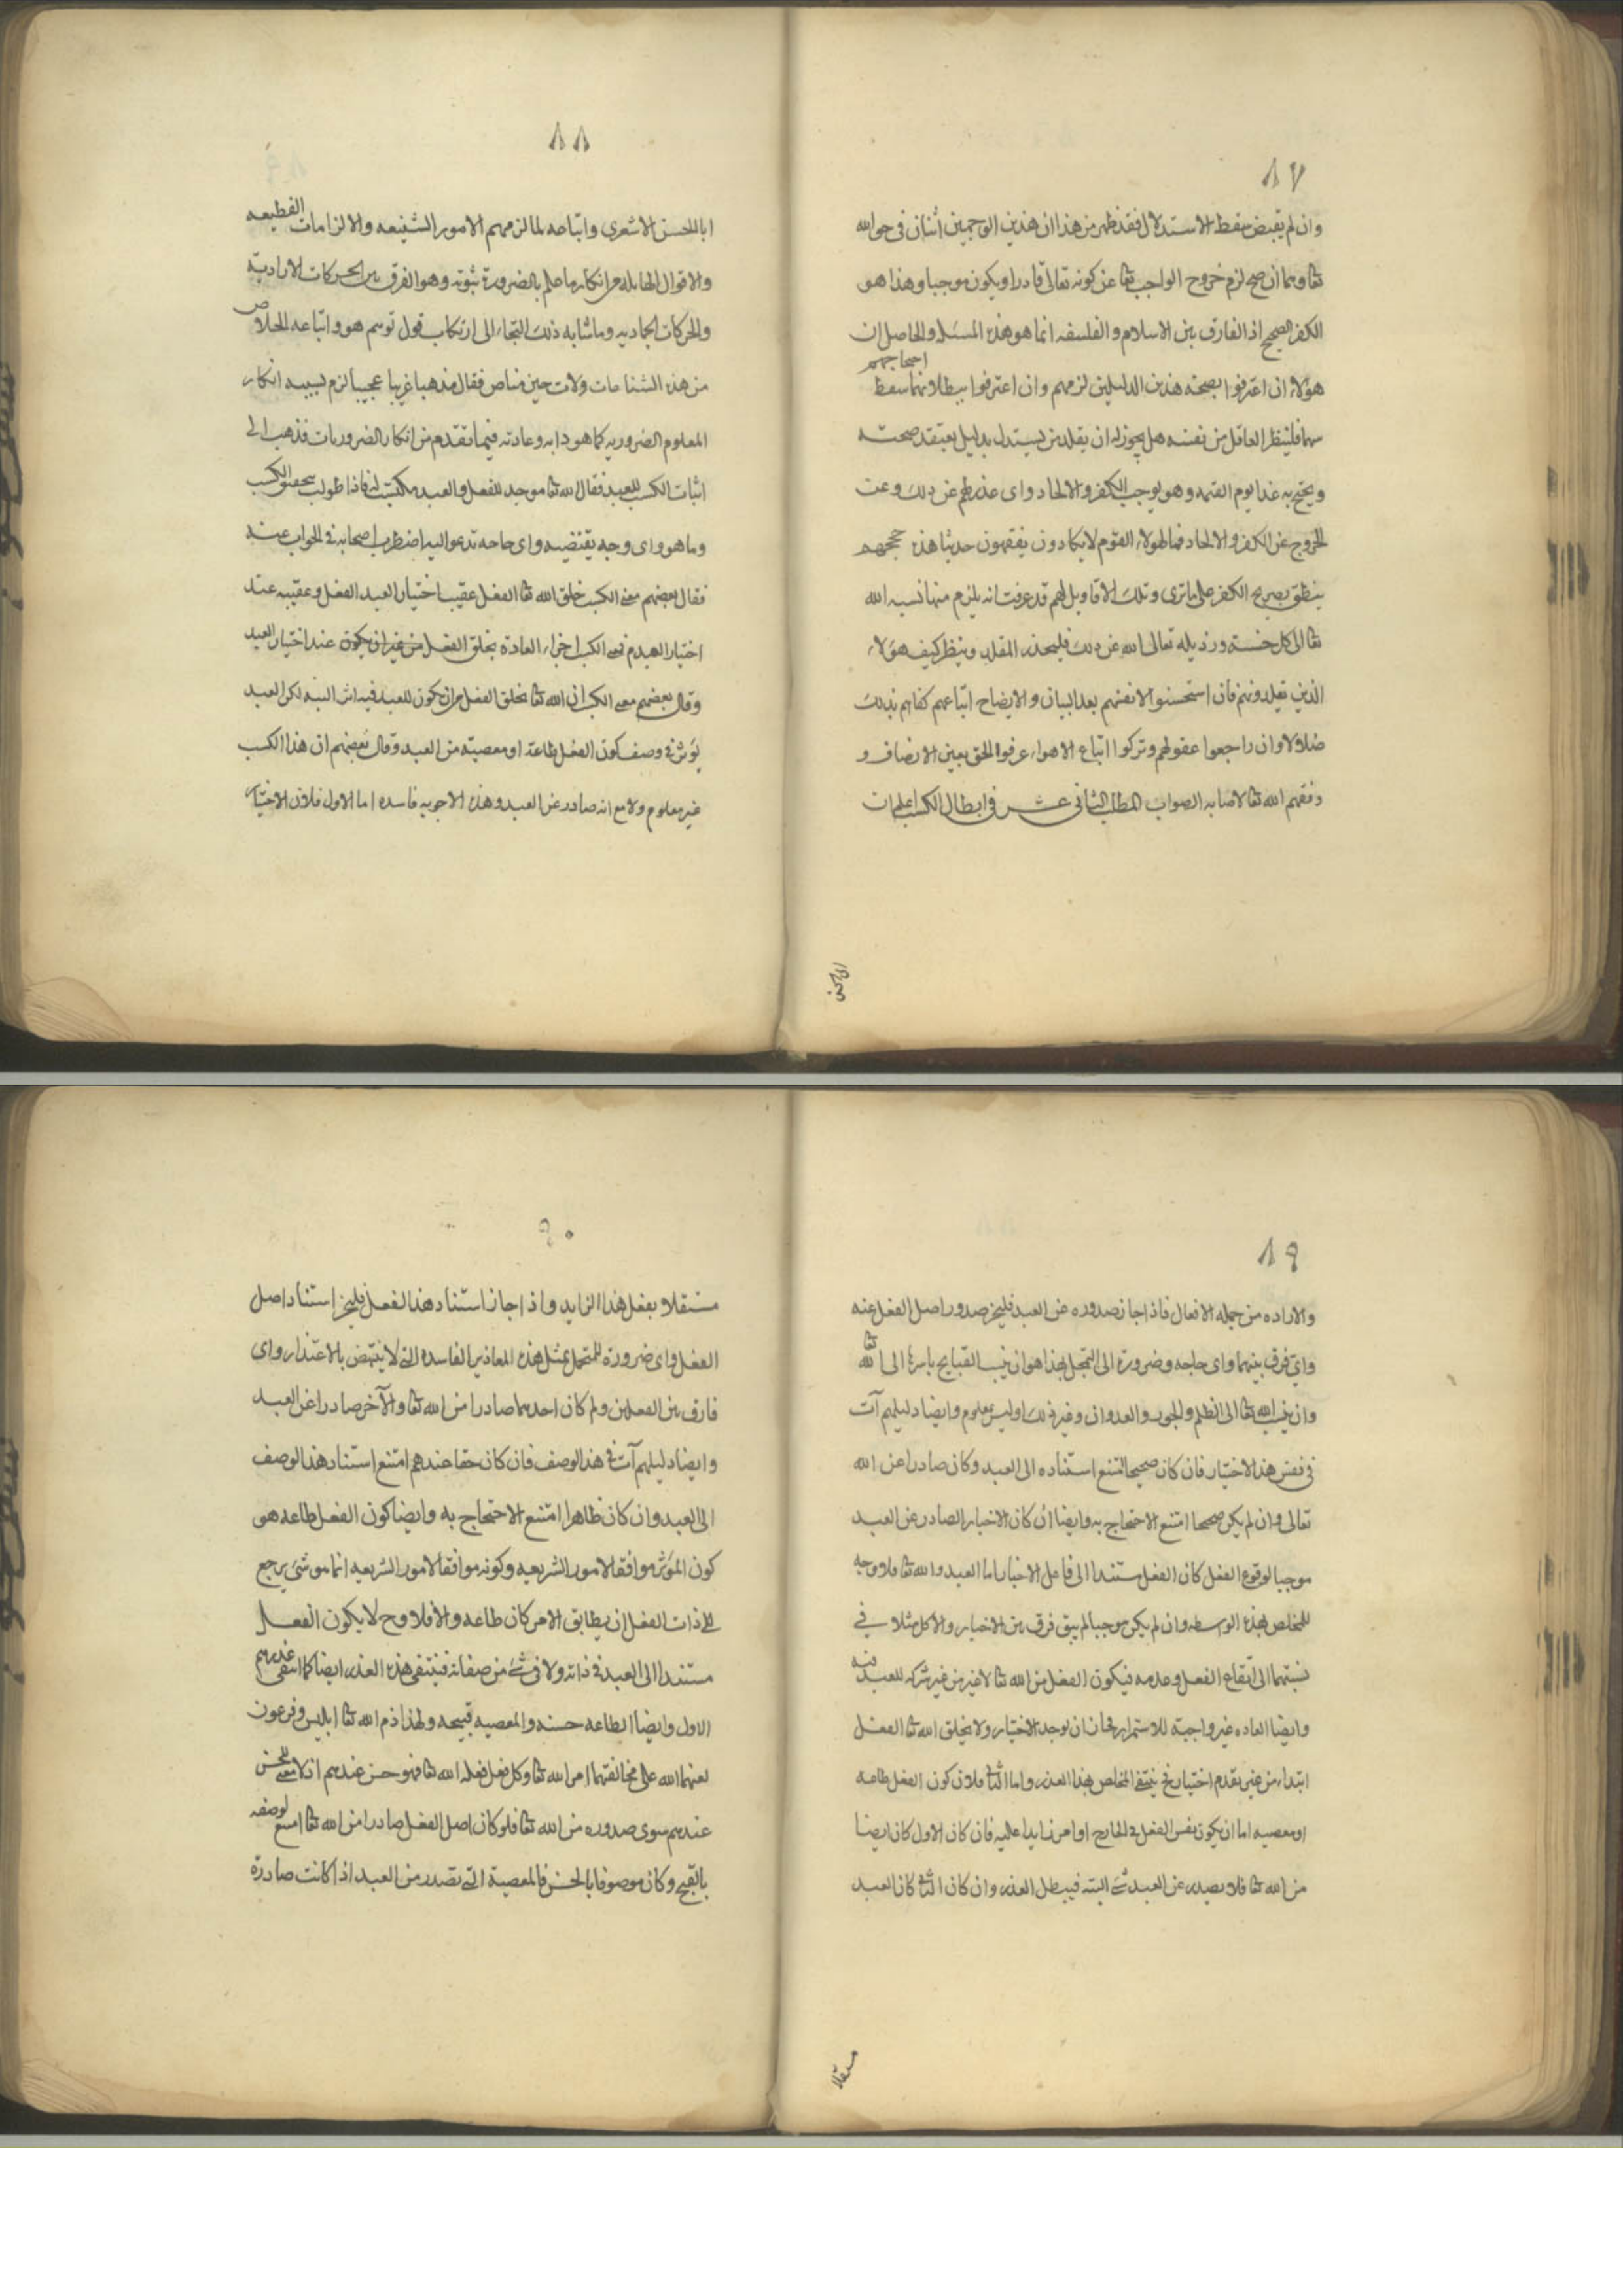 ٨٧
وان لم يقتض سقط الاستدلال فقد ظهر من هذا ان هذين الوجهين آتيان في حق الله
تعا وهما ان صح لزم خروج الواجب تعا عن كونه تعالى قادرا ويكون موجبا وهذا هو
الكفر الصريح اذ الفارق بين الاسلام و الفلسفه انما هو هذه المسئلة والحاصل ان
هؤلاء ان اعترفوا بصحة هذين الدليلين لزمهم وان اعترفوا ببطلانهما سقط احتجاجهم
بهما فلينظر العاقل من نفسه هل يجوز له ان يقلد من يستدل بدليل يعتقد صحته
ويحتج به غدا يوم القيمه وهو يوجب الكفر والالحاد واى عذر لهم عن ذلك وعن
الخروج عن الكفر والالحاد فما لهؤلاء القوم لا يكادون يفقهون حديثا هذه حججهم
ينطق بصريح الكفر على ما ترى وتلك الاقاويل لهم قد عرفت انه يلزم منها نسبه الله
تعا الى كل خسة ورذيله تعالى الله عن ذلك فليحذر المقلد وينظر كيف هؤلاء
الذين يقلدونهم فان استحسنوا لانفسهم بعد البيان والايضاح اتباعهم كفاهم بذلك
ضلالا وان راجعوا عقولهم وتركوا اتباع الاهواء عرفوا الحق بعين الانصاف و
وفقهم الله تعا لاصابه الصواب المطلب الثانى عشر في ابطال الكسب اعلم ان
٨٨
ابا الحسن الاشعرى واتباعه لما لزمهم الامور الشنيعه والالزامات الفظيعه
والاقوال الهايله من انكار ما علم بالضرورة ثبوته وهو الفرق بين الحركات الارادية
والحركات الجماديه وما شابه ذلك التجاء الى ارتكاب قول توهم هو واتباعه الخلاص
من هذه الشناعات ولات حين مناص فقال مذهبا غريبا عجيبا لزم بسببه انكار
المعلوم الضروريه كما هو دابه وعادته فيما تقدم من انكار الضروريات فذهب الى
اثبات الكسب للعبد فقال الله تعا موجد للفعل والعبد مكتسب له فاذا طولب بتحقيق الكسب
وما هو واى وجه يقتضيه واى حاجه تدعو اليه اضطرب اصحابه في الجواب عنه
فقال بعضهم معنى الكسب خلق الله تعا الفعل عقيب اختيار العبد الفعل وعقيبه عند
اختيار العدم فمعنى الكسب اجراء العادة بخلق الفعل من غير ان يكون عند اختيار العبد
وقال بعضهم معنى الكسب ان الله تعا يخلق الفعل من ان يكون للعبد فيه اثر البته لكن العبد
يؤثر في وصف كون الفعل طاعة او معصية من العبد وقال بعضهم ان هذا الكسب
غير معلوم ولا مع انه صادر عن العبد وهذه الاجوبه فاسده اما الاول فلان الاختيار
٨٩
والاراده من جمله الافعال فاذا جاز صدوره عن العبد فليجز صدور اصل الفعل عنه
واى فرق بينهما واى حاجه وضرورة الى التمحل بهذا هو ان ينسب القبايح باسرها الى الله تعا
وان ينسب الله تعا الى الظلم والجور والعدوان وغير ذلك وليس بمعلوم وايضا دليلهم آت
في نفس هذا الاختيار فان كان صحيحا امتنع استناده الى العبد وكان صادرا عن الله
تعالى وان لم يكن صحيحا امتنع الاحتجاج به وايضا ان كان الاختيار الصادر عن العبد
موجبا لوقوع الفعل كان الفعل مستندا الى فاعل الاختيار اما العبد والله تعا فلا وجه
للمخلص بهذه الواسطه وان لم يكن موجبا لم يبق فرق بين الاختيار والاكل مثلا في
نسبتهما الى ايقاع الفعل وعدمه فيكون الفعل من الله تعا لا غير من غير شركه للعبد فيه
وايضا العاده غير واجبة للاستمرار فجاز ان يوجد الاختيار ولا يخلق الله تعا الفعل
ابتداء من غير تقدم اختيار فح ينتفى المخلص بهذا العذر واما الثانى فلان كون الفعل طاعه
او معصيه اما ان يكون نفس الفعل في الخارج او امرا زايدا عليه فان كان الاول كان ايضا
من الله تعا فلا يصدر عن العبد شئ البته فيبطل العذر وان كان الثانى كان العبد
مستقلا
٩٠
مستقلا بفعل هذا الزايد واذا جاز استناد هذا الفعل فليجز استناد اصل
الفعل واى ضرورة للتمحل بمثل هذه المعاذير الفاسده التى لا ينتهض بالاعتذار واى
فارق بين الفعلين ولم كان احدهما صادرا من الله تعا والآخر صادرا عن العبد
وايضا دليلهم آت في هذا الوصف فان كان حقا عندهم امتنع استناد هذا الوصف
الى العبد وان كان ظاهرا امتنع الاحتجاج به وايضا كون الفعل طاعه هو
كون المؤثر موافقا لامور الشريعه وكونه موافقا لامور الشريعه انما هو شئ يرجع
الى ذات الفعل ان يطابق الامر كان طاعه والا فلا وح لا يكون الفعل
مستندا الى العبد في ذاته ولا في شئ من صفاته فينتفى هذه العذر ايضا كما انتفى عذرهم
الاول وايضا الطاعه حسنه والمعصيه قبيحه ولهذا ذم الله تعا ابليس وفرعون
لعنهما الله على مخالفتهما امر الله تعا وكل فعل فعله الله تعا فهو حسن عندهم اذ لا معنى للحسن
عندهم سوى صدوره من الله تعا فلو كان اصل الفعل صادرا من الله تعا امتنع لوصفه
بالقبح وكان موصوفا بالحسن فالمعصية التى تصدر من العبد اذا كانت صادرة